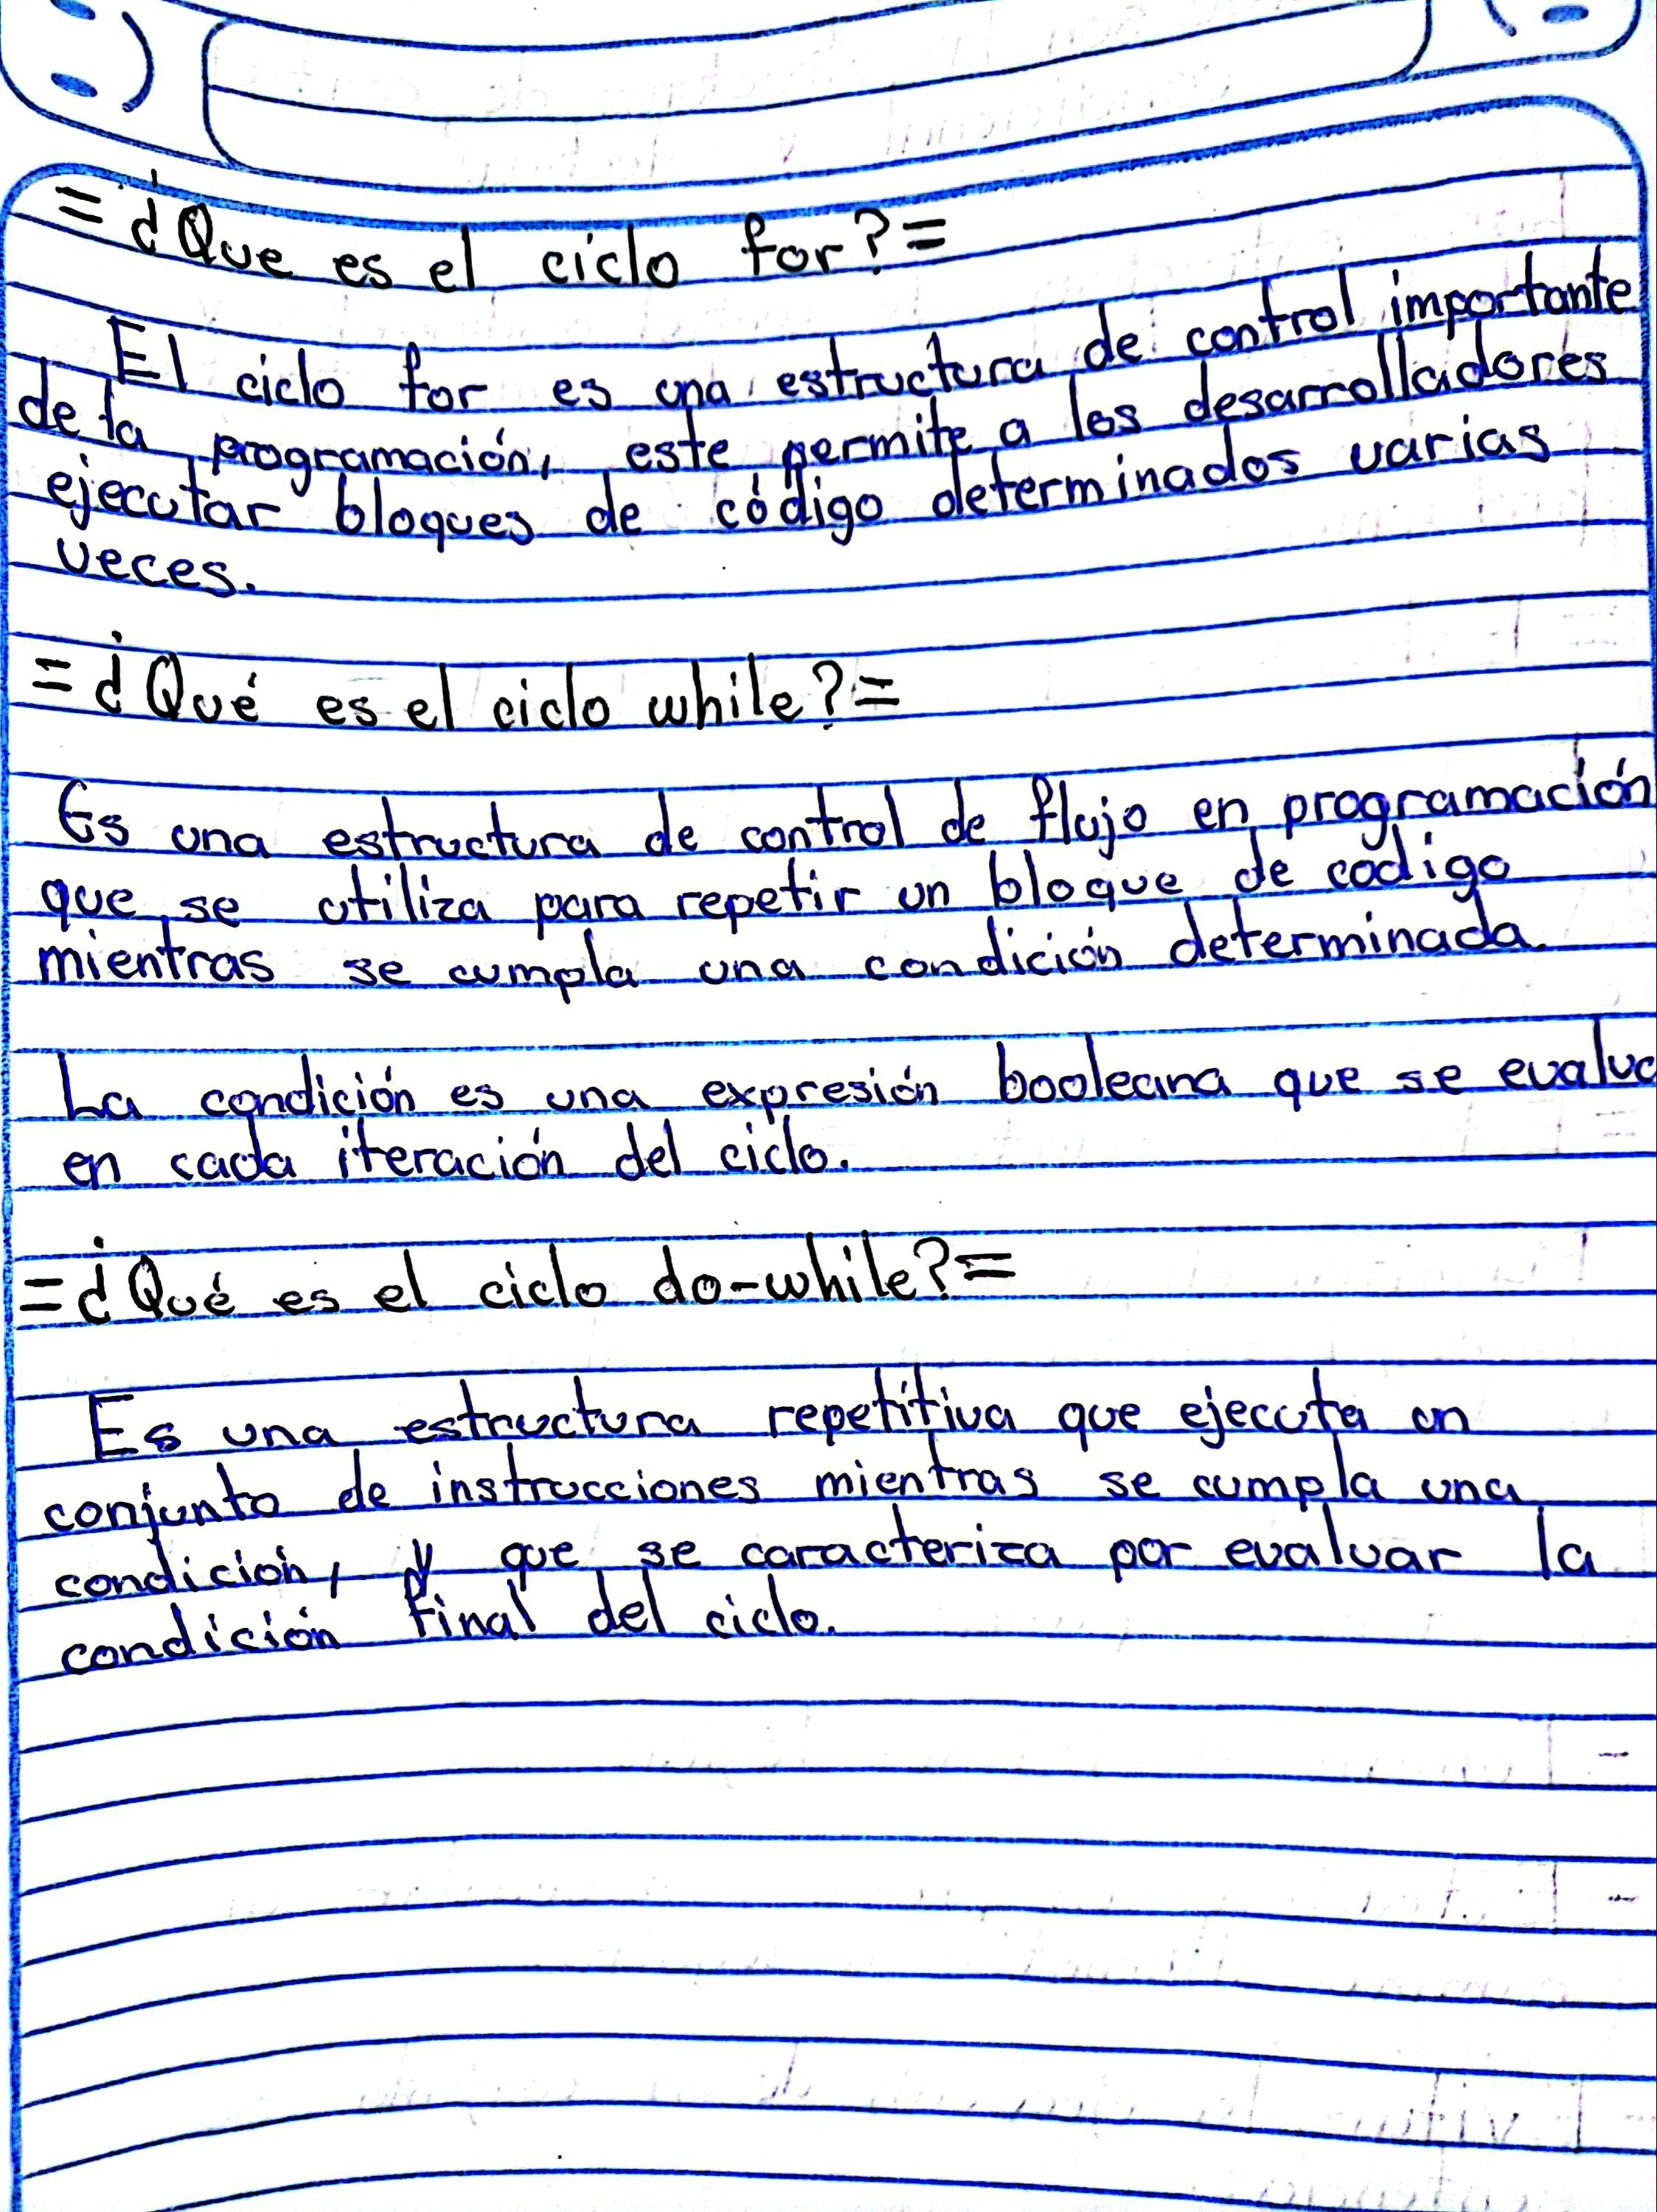 = ¿Que es el ciclo for? =
El ciclo for es una estructura de control importante
de la programación, este permite a los desarrolladores
ejecutar bloques de código determinados varias
veces.
= ¿Qué es el ciclo while? =
Es una estructura de control de flujo en programación
que se utiliza para repetir un bloque de código
mientras se cumpla una condición determinada.
La condición es una expresión booleana que se evalua
en cada iteración del ciclo.
= ¿Qué es el ciclo do-while? =
Es una estructura repetitiva que ejecuta un
conjunto de instrucciones mientras se cumpla una
condición, y que se caracteriza por evaluar la
condición final del ciclo.